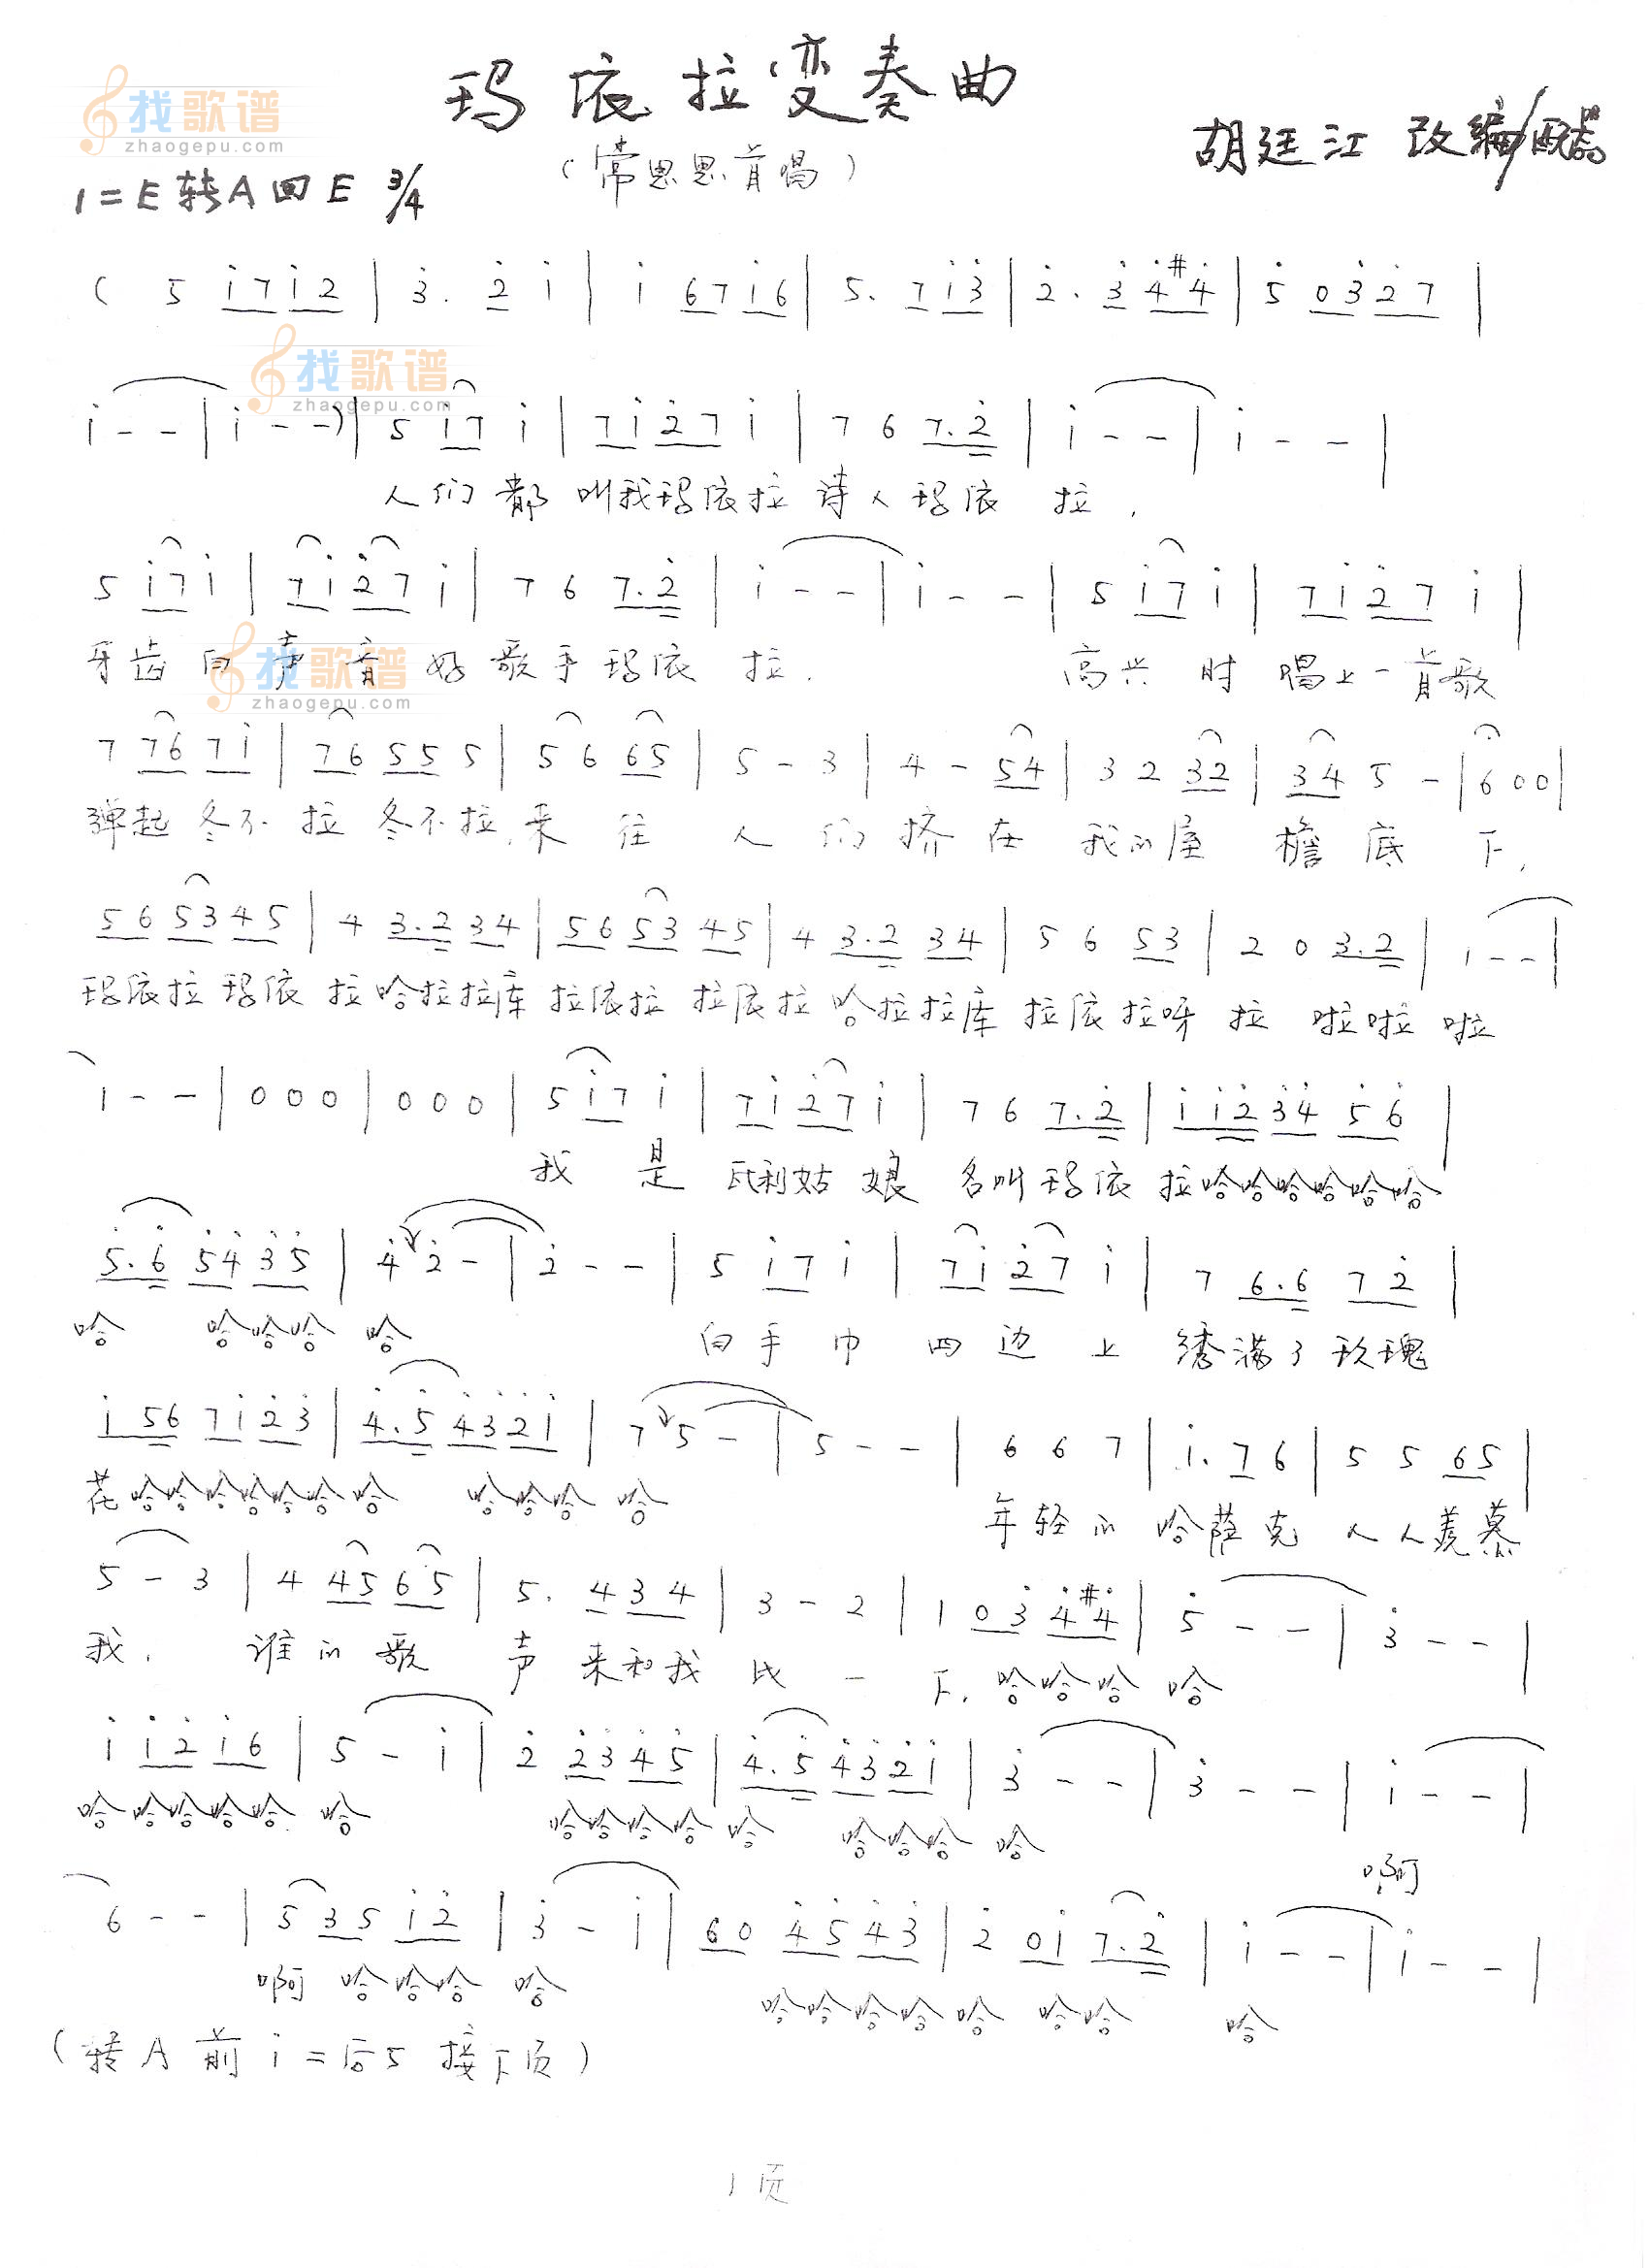 玛依拉变奏曲
(常思思首唱)
胡廷江 改编/配器
1=E转A回E 3/4
( 5 i7i2 | 3. 2 i | i 67i6 | 5. 7i3 | 2. 34#4 | 5 0327 |
i - - | i - -) | 5 i7 i | 7i27 i | 7 6 7.2 | i - - | i - - |
人们都叫我玛依拉诗人玛依拉,
5 i7 i | 7i27 i | 7 6 7.2 | i - - | i - - | 5 i7 i | 7i27 i |
牙齿白声音好歌手玛依拉. 高兴时唱上一首歌
7 76 7i | 76 55 5 | 5 6 65 | 5 - 3 | 4 - 54 | 3 2 32 | 34 5 - | 6 0 0 |
弹起冬不拉冬不拉,来往人们挤在我的屋檐底下,
56 53 45 | 4 3.2 34 | 56 53 45 | 4 3.2 34 | 5 6 53 | 2 0 3.2 | 1 - - |
玛依拉玛依拉哈拉拉库拉依拉拉依拉哈拉拉库拉依拉呀拉啦啦啦
1 - - | 0 0 0 | 0 0 0 | 5 i7 i | 7i27 i | 7 6 7.2 | ii2 34 56 |
我是瓦利姑娘名叫玛依拉哈哈哈哈哈哈
5.6 54 35 | 4 2 - | 2 - - | 5 i7 i | 7i27 i | 7 6.6 72 |
哈 哈哈哈 哈 白手巾四边上绣满了玫瑰
i56 7i 23 | 4.5 43 2i | 7 5 - | 5 - - | 6 6 7 | i. 7 6 | 5 5 65 |
花哈哈哈哈哈哈哈 哈哈哈 哈 年轻的哈萨克人人羡慕
5 - 3 | 4 45 65 | 5. 4 34 | 3 - 2 | 1 03 4#4 | 5 - - | 3 - - |
我. 谁的歌声来和我比一下.哈哈哈 哈
i i2 i6 | 5 - i | 2 23 45 | 4.5 43 2i | 3 - - | 3 - - | i - - |
哈哈哈哈哈 哈 哈哈哈哈 哈 哈哈哈 哈 啊
6 - - | 5 35 i2 | 3 - i | 60 45 43 | 2 0i 7.2 | i - - | i - - |
啊 哈哈哈 哈 哈哈哈哈哈 哈哈 哈
(转A前i=后5 接下页)
1页
找歌谱
zhaogepu.com
找歌谱
zhaogepu.com
找歌谱
zhaogepu.com